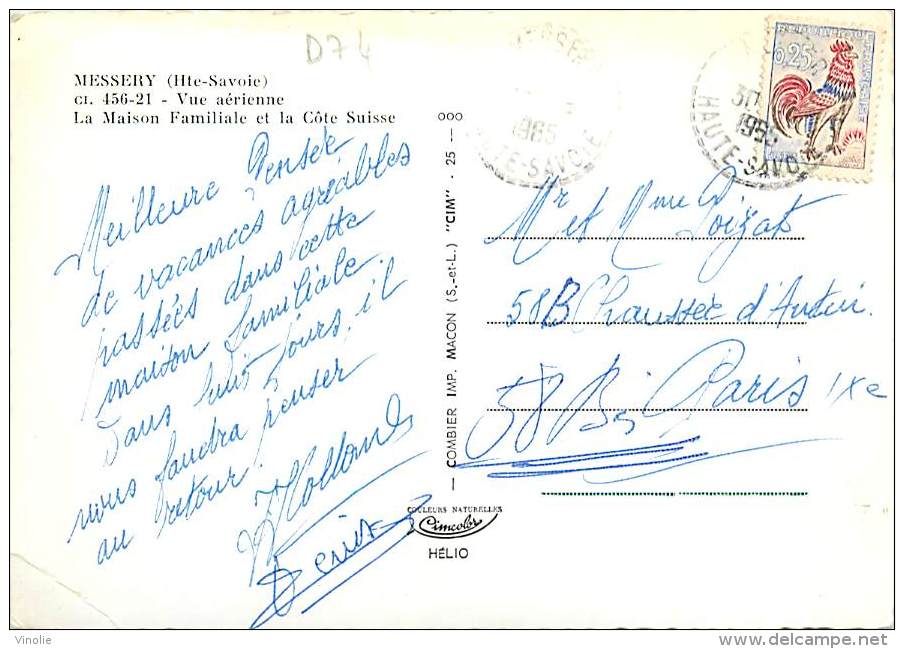 D74
MESSERY (Hte-Savoie)
CI. 456-21 - Vue aérienne
La Maison Familiale et la Côte Suisse
Meilleure Pensée
de vacances agréables
passées dans cette
maison familiale.
Dans huit jours, il
nous faudra penser
au retour.
Denise
COMBIER IMP. MACON (S.-et-L.) "CIM" - 25 - 000
COULEURS NATURELLES
Cimcolor
HÉLIO
1965
HAUTE-SAVOIE
30
1965
HAUTE-SAVOIE
0,25
Mr et Mme Loizat
58B Chaussée d'Antin
58 Bis Paris IXe
Vinolie
delcampe.net